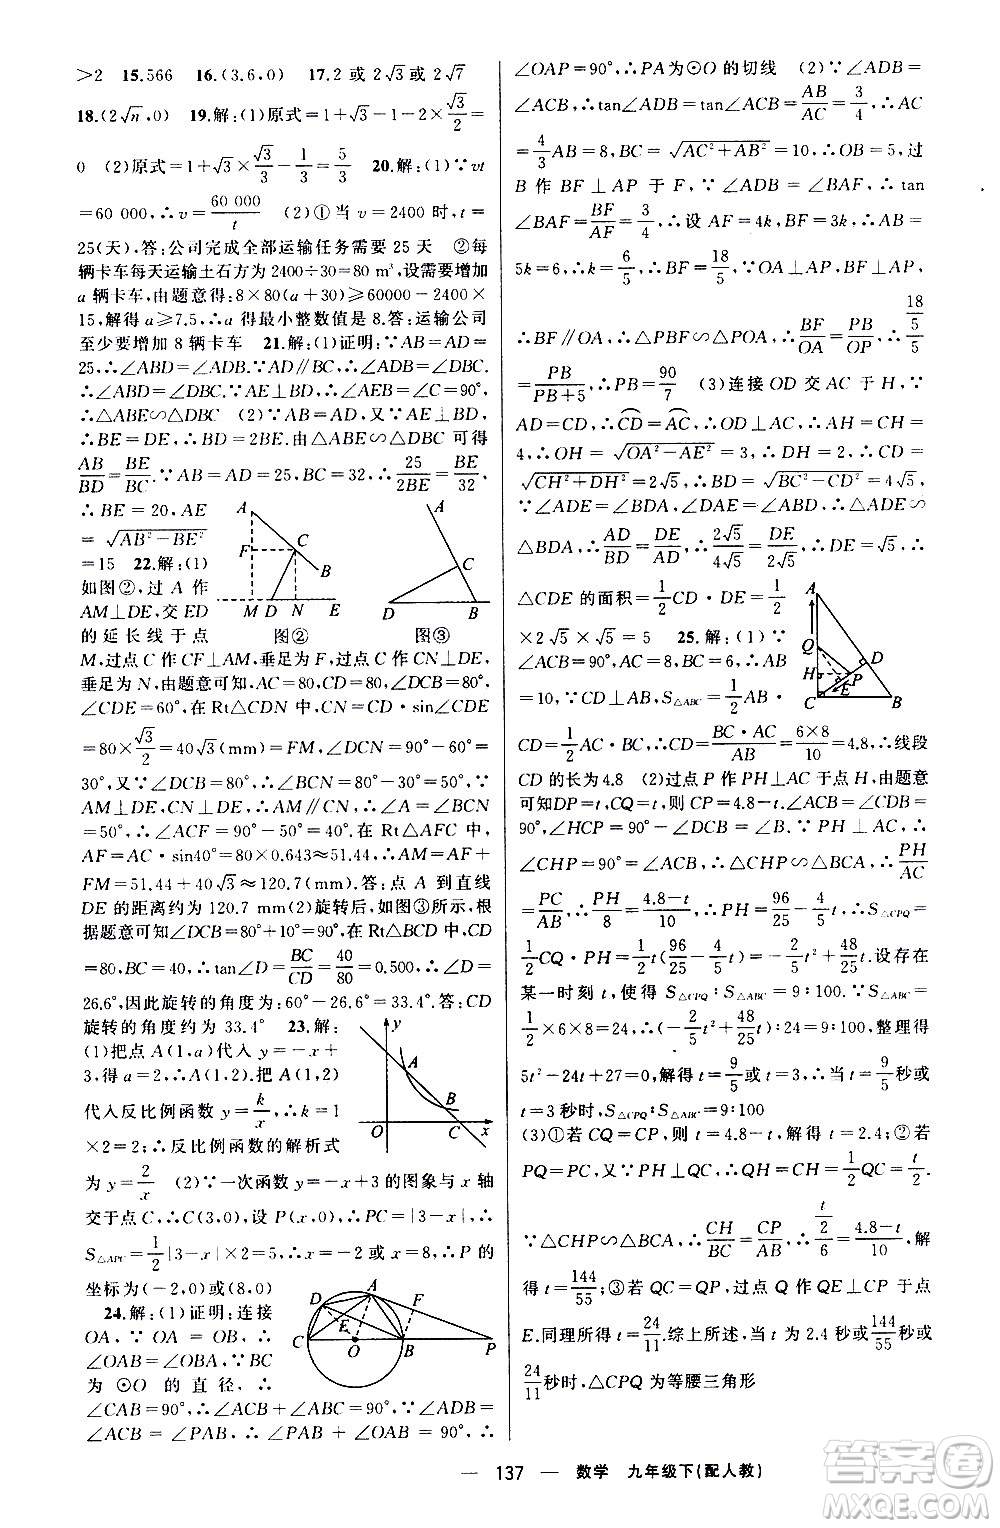 >2 15.566 16.(3,6,0) 17.2 或 2√3 或 2√7
18.(2√n,0) 19.解:(1)原式=1+√3-1-2×√3/2=
0 (2)原式=1+√3×√3/3-1/3=5/3 20.解:(1)∵vt
=60 000,∴v=60 000/t (2)①当 v=2400 时,t=
25(天),答:公司完成全部运输任务需要 25 天 ②每
辆卡车每天运输土石方为 2400÷30=80 m³,设需要增加
a 辆卡车,由题意得:8×80(a+30)≥60000-2400×
15,解得 a≥7.5,∴a 得最小整数值是 8.答:运输公司
至少要增加 8 辆卡车 21.解:(1)证明:∵AB=AD=
25,∴∠ABD=∠ADB.∵AD∥BC,∴∠ADB=∠DBC,
∴∠ABD=∠DBC.∵AE⊥BD,∴∠AEB=∠C=90°,
∴△ABE∽△DBC (2)∵AB=AD,又∵AE⊥BD,
∴BE=DE,∴BD=2BE.由△ABE∽△DBC 可得
AB/BD=BE/BC.∵AB=AD=25,BC=32,∴25/2BE=BE/32,
∴BE=20,AE
=√AB²-BE²
=15 22.解:(1)
如图②,过 A 作
AM⊥DE,交 ED
的延长线于点
A
F
C
B
M D N E
图②
A
C
D
B
图③
M,过点 C 作 CF⊥AM,垂足为 F,过点 C 作 CN⊥DE,
垂足为 N,由题意可知,AC=80,CD=80,∠DCB=80°,
∠CDE=60°,在 Rt△CDN 中,CN=CD·sin∠CDE
=80×√3/2=40√3(mm)=FM,∠DCN=90°-60°=
30°,又∵∠DCB=80°,∴∠BCN=80°-30°=50°,∵
AM⊥DE,CN⊥DE,∴AM∥CN,∴∠A=∠BCN
=50°,∴∠ACF=90°-50°=40°,在 Rt△AFC 中,
AF=AC·sin40°=80×0.643≈51.44,∴AF+
FM=51.44+40√3≈120.7(mm).答:点 A 到直线
DE 的距离约为 120.7 mm(2)旋转后,如图③所示,根
据题意可知∠DCB=80°+10°=90°,在 Rt△BCD 中,CD
=80,BC=40,∴tan∠D=BC/CD=40/80=0.500,∴∠D≈
26.6°,因此旋转的角度为:60°-26.6°=33.4°.答:CD
旋转的角度约为 33.4° 23.解:
(1)把点 A(1,a)代入 y=-x+
3,得 a=2,∴A(1,2).把 A(1,2)
代入反比例函数 y=k/x,∴k=1
×2=2;∴反比例函数的解析式
y
A
B
O
C x
为 y=2/x (2)∵一次函数 y=-x+3 的图象与 x 轴
交于点 C,∴C(3,0),设 P(x,0),∴PC=|3-x|,∴
S△APC=1/2|3-x|×2=5,∴x=-2 或 x=8,∴P 的
坐标为(-2,0)或(8,0)
24.解:(1)证明:连接
OA,∵OA=OB,∴
∠OAB=∠OBA,∵BC
为 ⊙O 的直径,∴
D
A
F
E
C
O
B
P
∠CAB=90°,∴∠ACB+∠ABC=90°,∵∠ADB=
∠ACB=∠PAB,∴∠PAB+∠OAB=90°,∴
∠OAP=90°,∴PA为⊙O 的切线 (2)∵∠ADB=
∠ACB,∴tan∠ADB=tan∠ACB=AB/AC=3/4,∴AC
=4/3AB=8,BC=√AC²+AB²=10,∴OB=5,过
B 作 BF⊥AP 于 F,∵∠ADB=∠BAF,∴tan
∠BAF=BF/AF=3/4,∴设 AF=4k,BF=3k,∴AB=
5k=6,∴k=6/5,∴BF=18/5,∵OA⊥AP,BF⊥AP,
∴BF∥OA,∴△PBF∽△POA,∴BF/OA=PB/OP,∴(18/5)/5
=PB/(PB+5),∴PB=90/7 (3)连接 OD 交 AC 于 H,∵
AD=CD,∴CD=AC,∴OD⊥AC,∴AH=CH=
4,∴OH=√OA²-AE²=3,∴DH=2,∴CD=
√CH²+DH²=2√5,∴BD=√BC²-CD²=4√5,
∵∠ADE=∠BDA,∠DAE=∠ABD,∴△ADE∽
△BDA,∴AD/BD=DE/AD,∴2√5/4√5=DE/2√5,∴DE=√5,∴
△CDE 的面积=1/2CD·DE=1/2
×2√5×√5=5 25.解:(1)∵
∠ACB=90°,AC=8,BC=6,∴AB
=10,∵CD⊥AB,S△ABC=1/2AB·
A
Q
D
H
P
E
C
B
CD=1/2AC·BC,∴CD=BC·AC/AB=6×8/10=4.8,∴线段
CD 的长为 4.8 (2)过点 P 作 PH⊥AC 于点 H,由题意
可知DP=t,CQ=t,则 CP=4.8-t,∵∠ACB=∠CDB
=90°,∴∠HCP=90°-∠DCB=∠B.∵PH⊥AC,∴
∠CHP=90°=∠ACB,∴△CHP∽△BCA,∴PH/AC
=PC/AB,∴PH/8=4.8-t/10,∴PH=96/25-4/5t,∴S△CPQ=
1/2CQ·PH=1/2t(96/25-4/5t)=-2/5t²+48/25t;设存在
某一时刻 t,使得 S△CPQ∶S△ABC=9∶100,∵S△ABC=
1/2×6×8=24,∴(-2/5t²+48/25t)∶24=9∶100,整理得
5t²-24t+27=0,解得 t=9/5或 t=3,∴当 t=9/5秒或
t=3 秒时,S△CPQ∶S△ABC=9∶100
(3)①若 CQ=CP,则 t=4.8-t,解得 t=2.4;②若
PQ=PC,∵PH⊥QC,∴QH=CH=1/2QC=t/2.
∵△CHP∽△BCA,∴CH/BC=CP/AB,∴(t/2)/6=4.8-t/10,解
得 t=144/55;③若 QC=QP,过点 Q 作 QE⊥CP 于点
E.同理所得 t=24/11.综上所述,当 t 为 2.4 秒或144/55秒或
24/11秒时,△CPQ 为等腰三角形
— 137 — 数学 九年级下(配人教)
答案圈
MXQE.COM